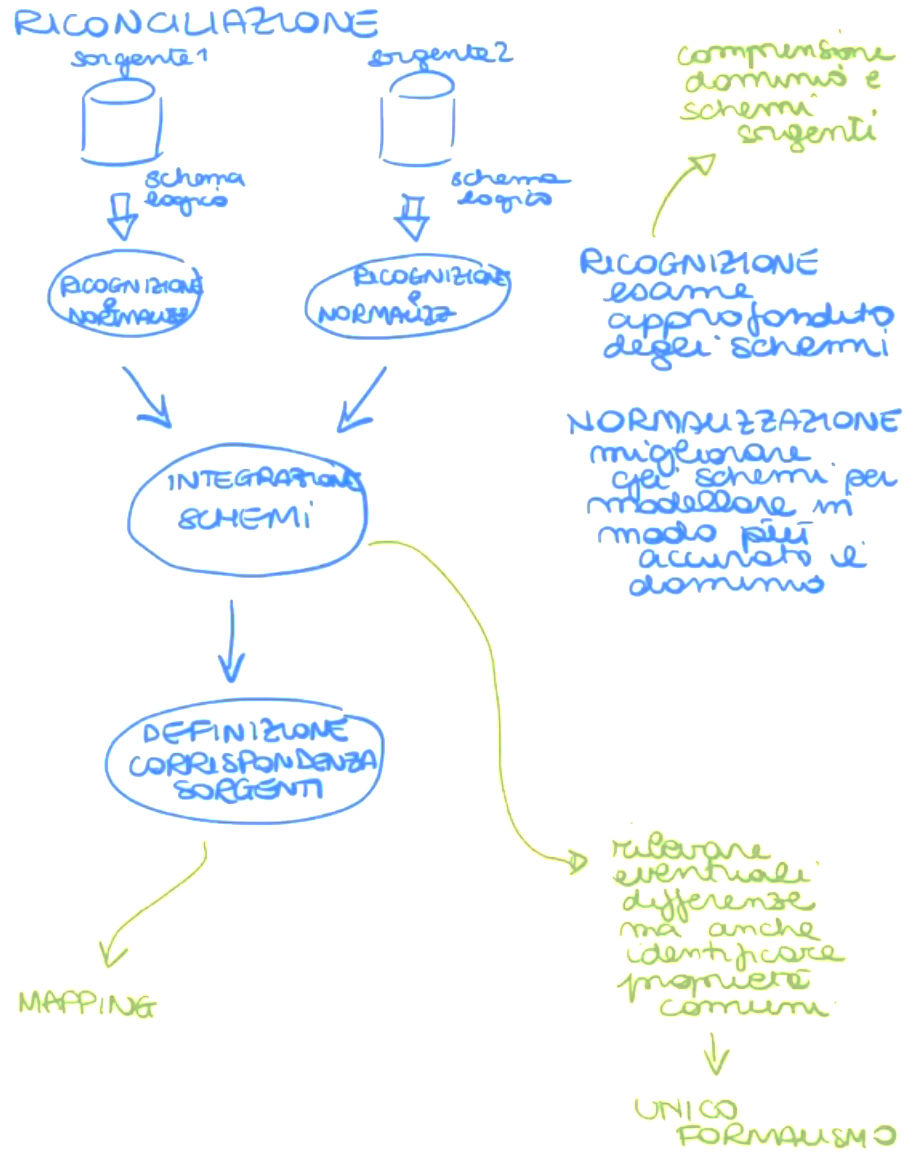 RICONCILIAZIONE
sorgente1
sorgente2
schema
logico
schema
logico
RICOGNIZIONE
e
NORMALIZZ
RICOGNIZIONE
e
NORMALIZZ
INTEGRAZIONE
SCHEMI
DEFINIZIONE
CORRISPONDENZA
SORGENTI
MAPPING
comprensione
dominio e
schemi
sorgenti
RICOGNIZIONE
esame
approfondito
degli schemi
NORMALIZZAZIONE
migliorare
gli schemi per
modellare in
modo più
accurato il
dominio
rilevare
eventuali
differenze
ma anche
identificare
proprietà
comuni
UNICO
FORMALISMO